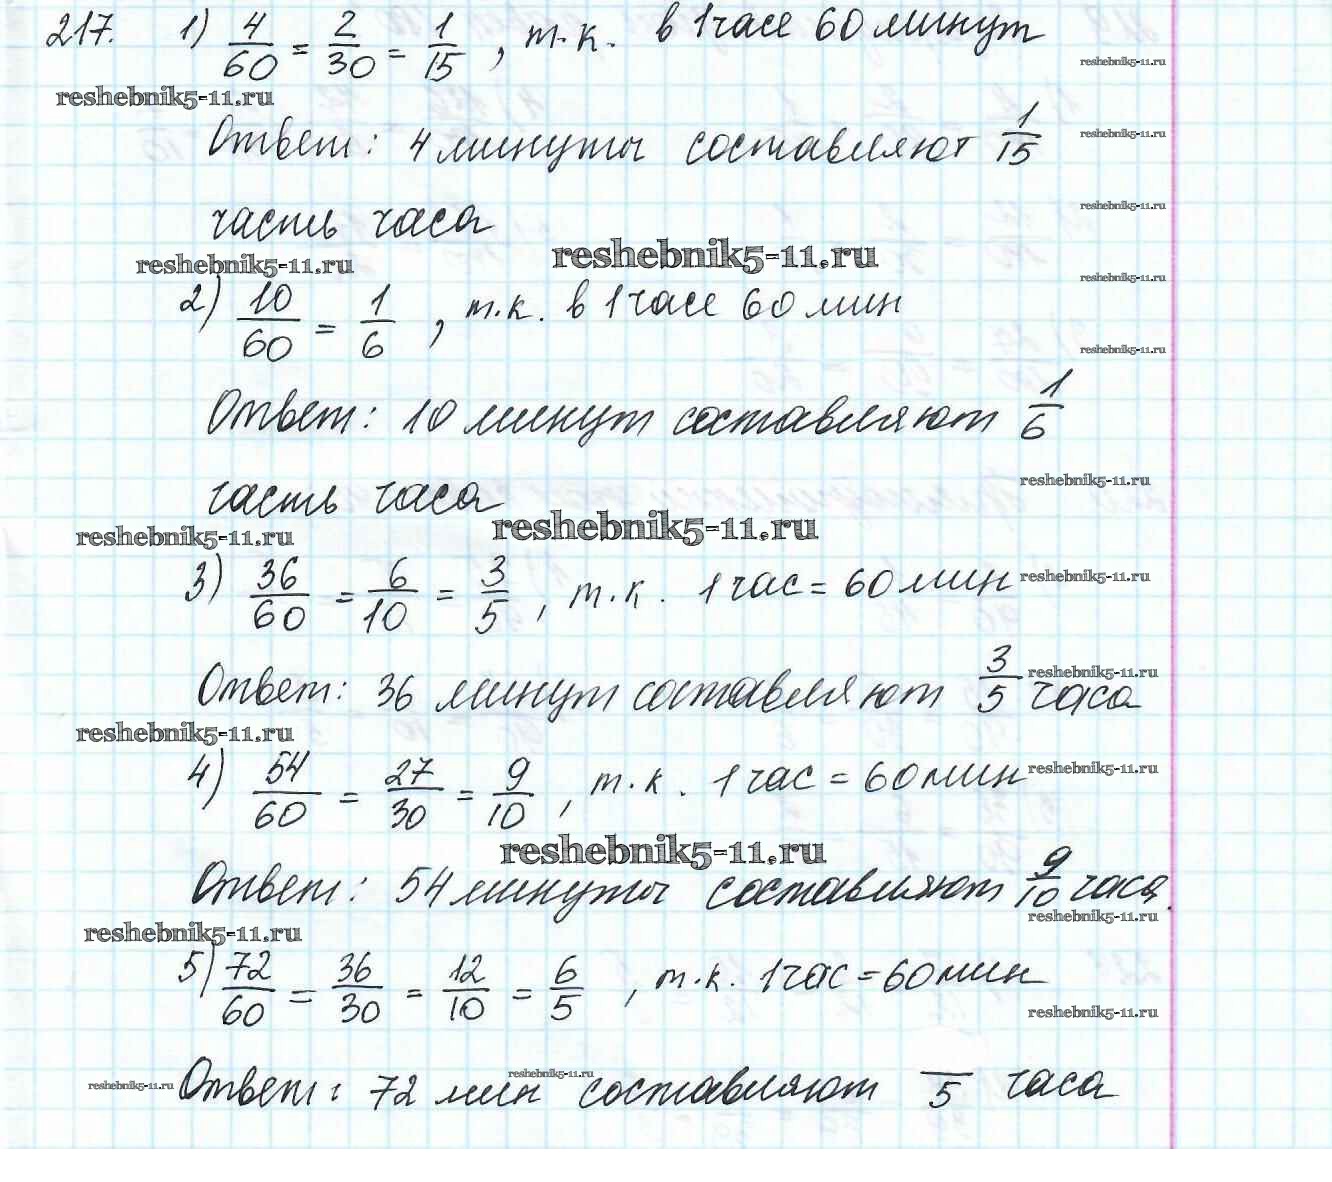 217. 1) 4/60 = 2/30 = 1/15, т.к. в 1 часе 60 минут
reshebnik5-11.ru
reshebnik5-11.ru
Ответ: 4 минуты составляют 1/15
reshebnik5-11.ru
часть часа
reshebnik5-11.ru
reshebnik5-11.ru
reshebnik5-11.ru
reshebnik5-11.ru
2) 10/60 = 1/6, т.к. в 1 часе 60 мин
reshebnik5-11.ru
Ответ: 10 минут составляют 1/6
reshebnik5-11.ru
часть часа
reshebnik5-11.ru
reshebnik5-11.ru
3) 36/60 = 6/10 = 3/5, т.к. 1 час = 60 мин
reshebnik5-11.ru
Ответ: 36 минут составляют 3/5 часа
reshebnik5-11.ru
reshebnik5-11.ru
4) 54/60 = 27/30 = 9/10, т.к. 1 час = 60 мин
reshebnik5-11.ru
reshebnik5-11.ru
Ответ: 54 минуты составляют 9/10 часа.
reshebnik5-11.ru
reshebnik5-11.ru
5) 72/60 = 36/30 = 12/10 = 6/5, т.к. 1 час = 60 мин
reshebnik5-11.ru
reshebnik5-11.ru
reshebnik5-11.ru
Ответ: 72 мин составляют /5 часа